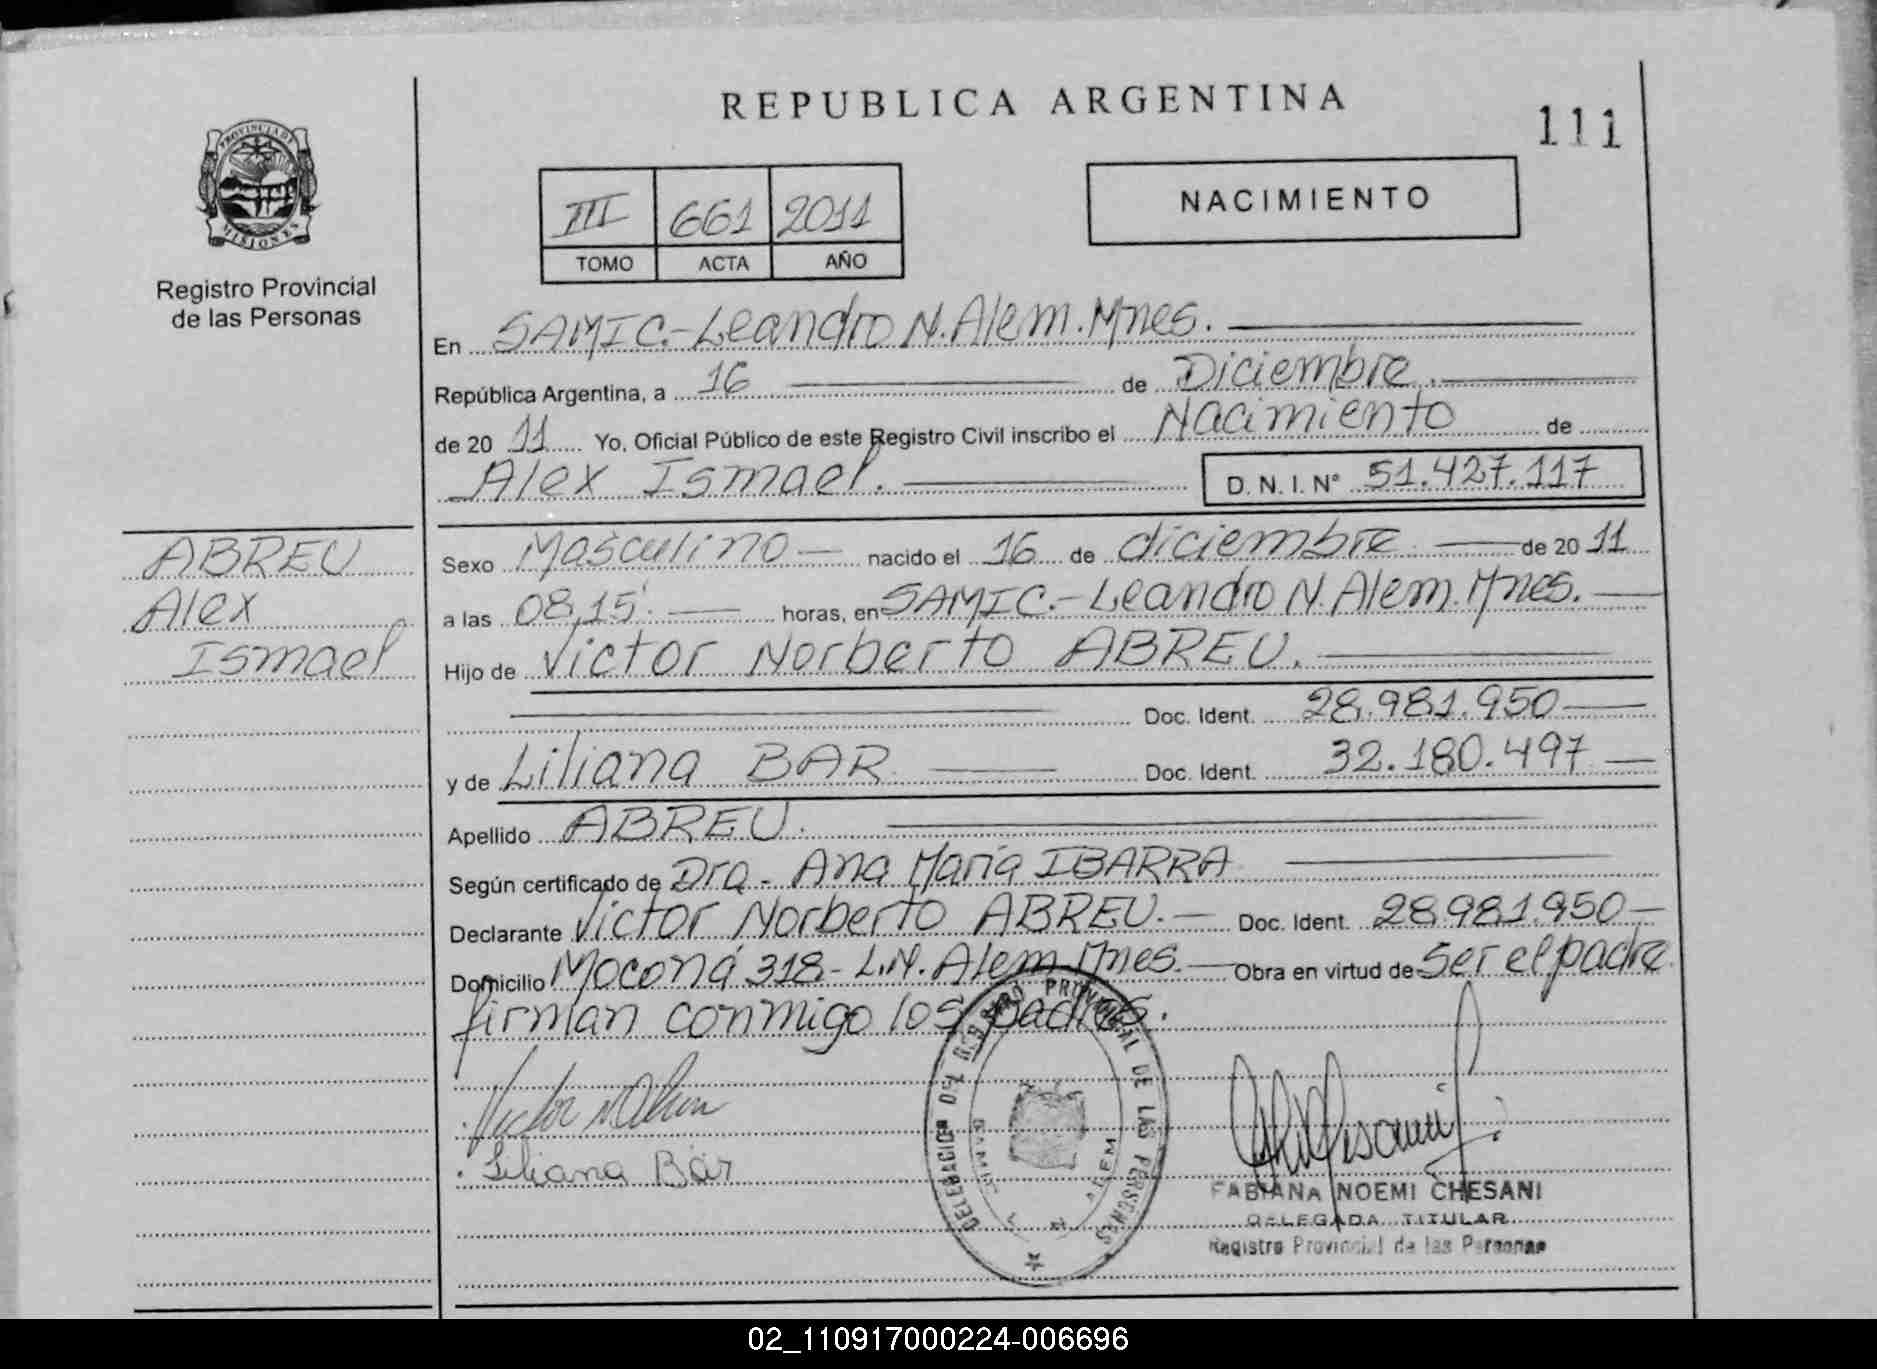 REPUBLICA ARGENTINA
111
PROVINCIA DE MISIONES
Registro Provincial
de las Personas
III 661 2011
TOMO ACTA AÑO
NACIMIENTO
En SAMIC.-Leandro N. Alem. Mnes.
República Argentina, a 16 de Diciembre.
de 20 11 Yo, Oficial Público de este Registro Civil inscribo el Nacimiento de
Alex Ismael. D. N. I. N° 51.427.117
ABREU
Alex
Ismael
Sexo Masculino nacido el 16 de diciembre de 20 11
a las 08,15. horas, en SAMIC.-Leandro N. Alem. Mnes.
Hijo de Victor Norberto ABREU.
Doc. Ident. 28.981.950
y de Liliana BAR Doc. Ident. 32.180.497
Apellido ABREU.
Según certificado de Dra- Ana María IBARRA
Declarante Victor Norberto ABREU. Doc. Ident. 28.981.950
Domicilio Mocona 318- L.N. Alem. Mnes. Obra en virtud de Ser el padre.
firman conmigo los padres.
DELEGACION DEL REGISTRO PROVINCIAL DE LAS PERSONAS
Victor
Liliana Bar
FABIANA NOEMI CHESANI
DELEGADA TITULAR
Registro Provincial de las Personas
02_110917000224-006696